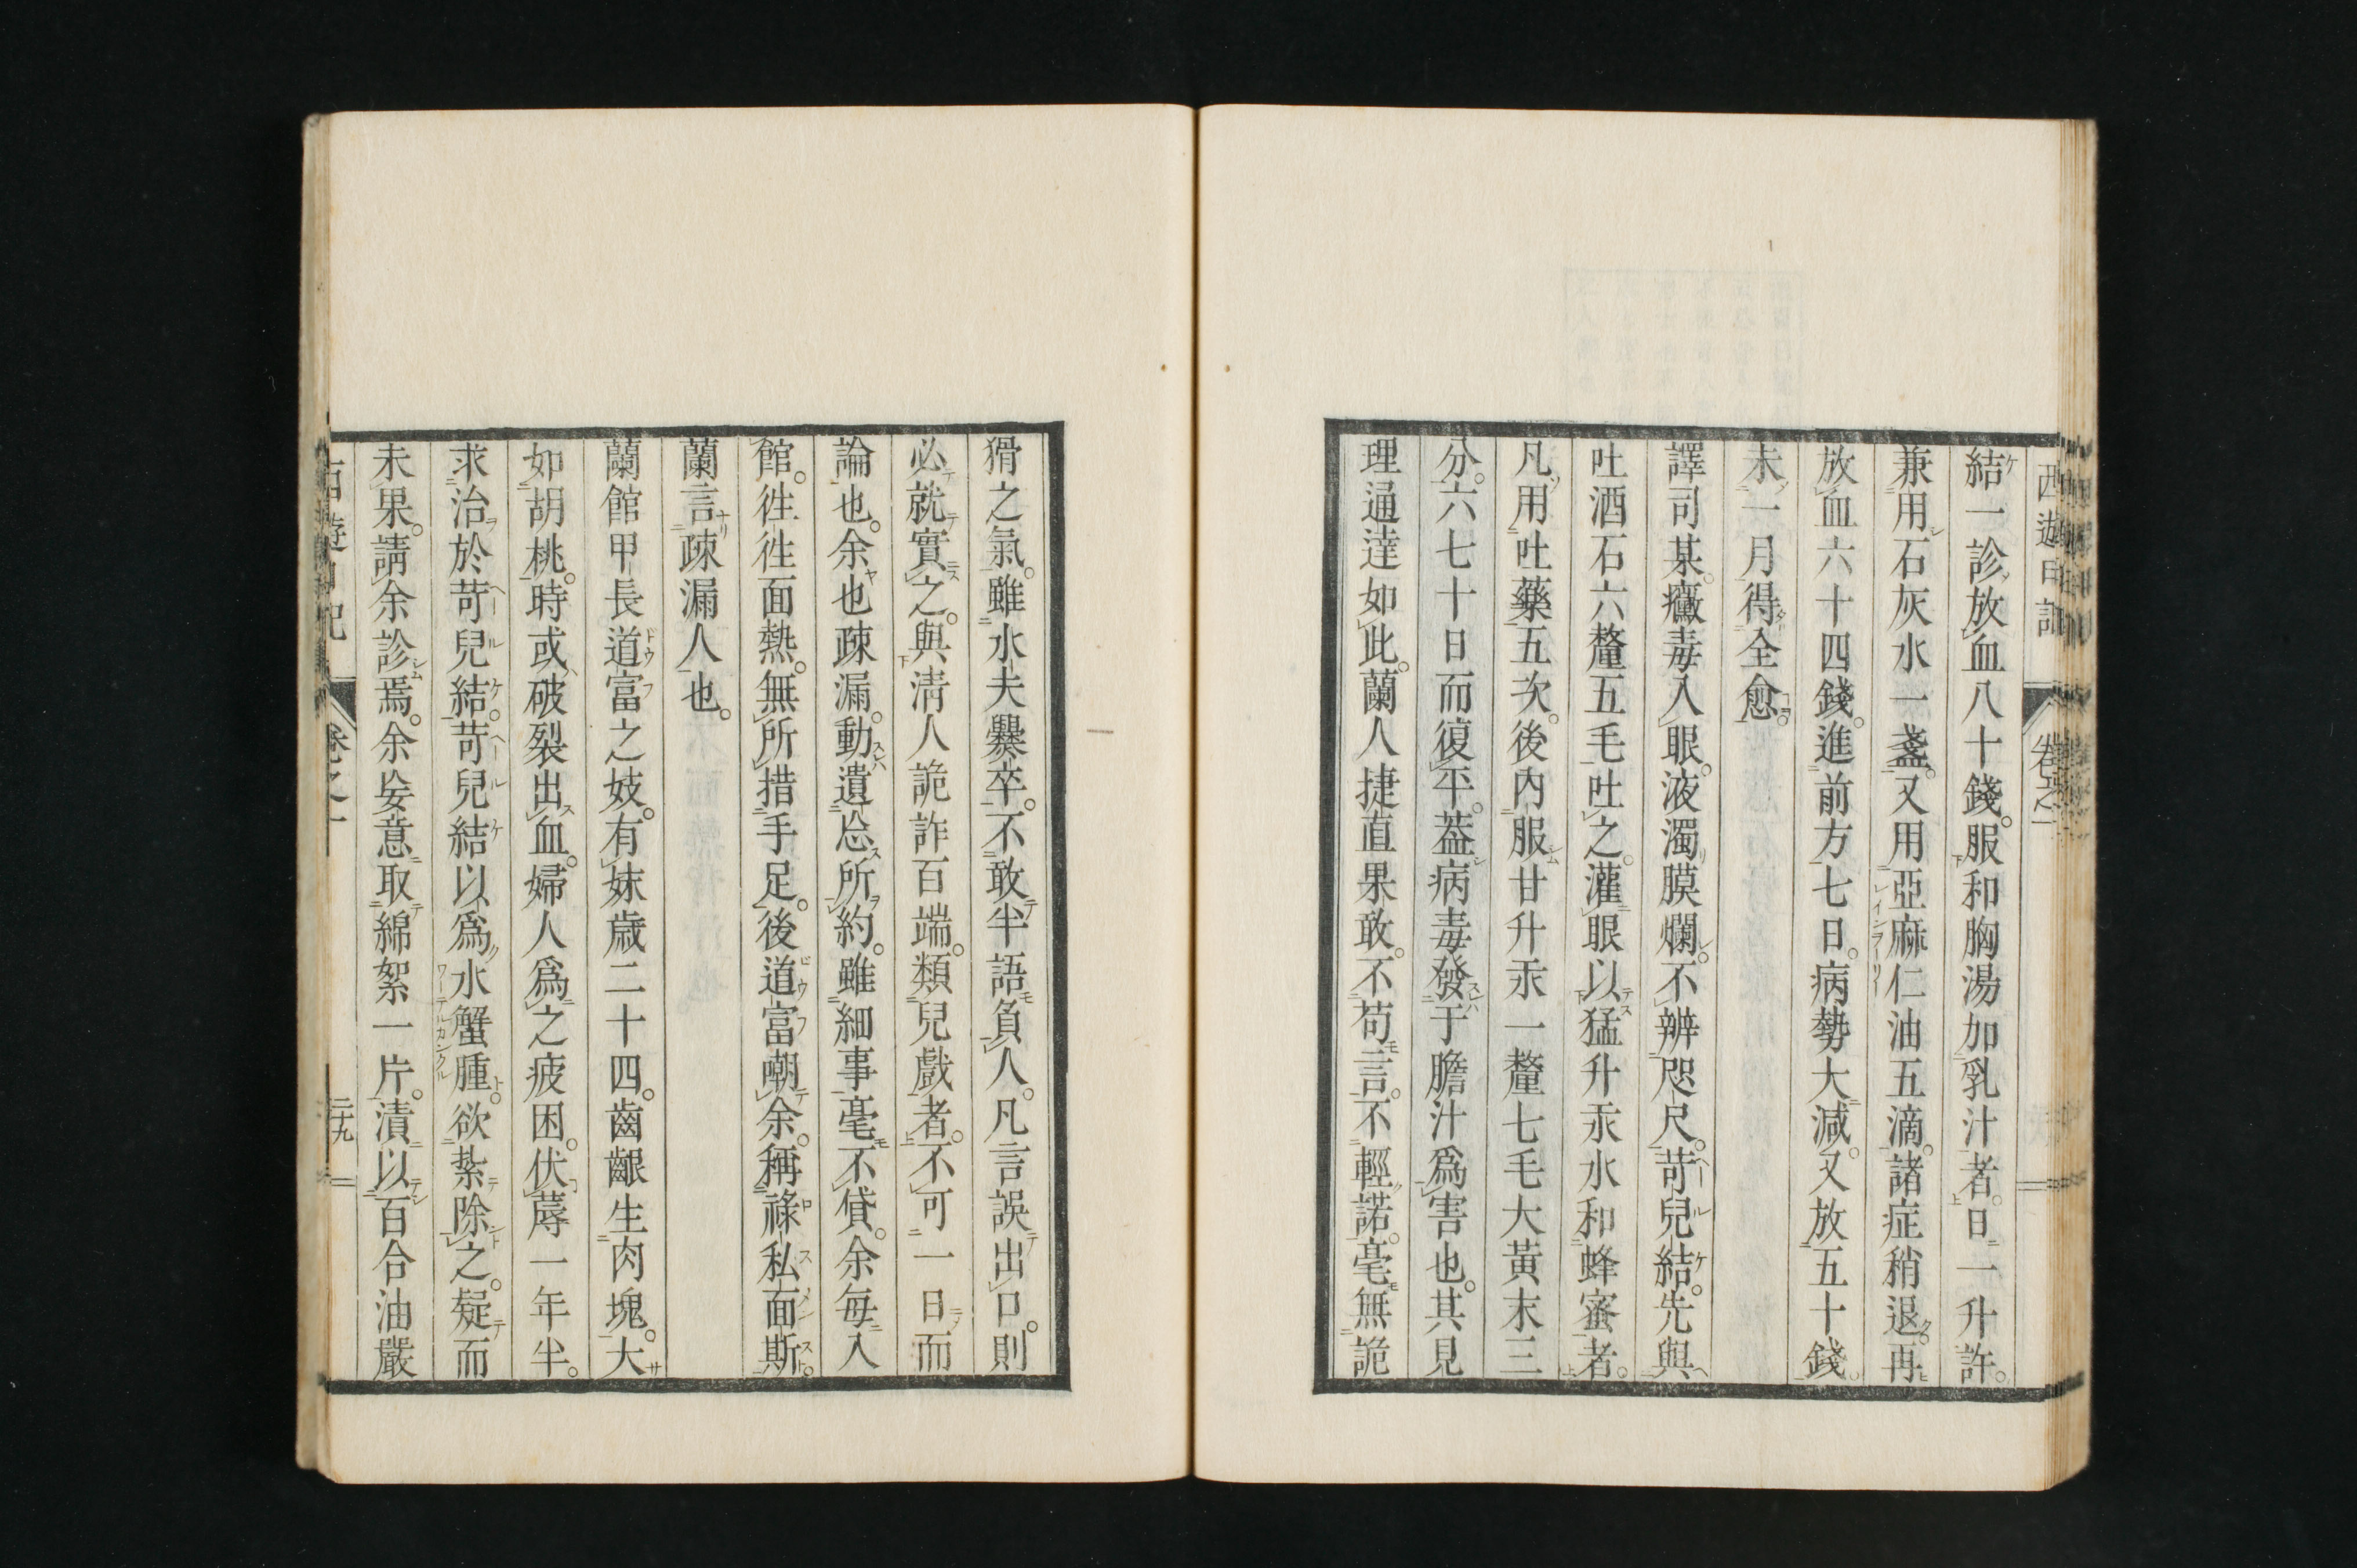 結一診放血八十錢。服和胸湯加乳汁者。日一升許。
兼用石灰水一盞。又用亞麻仁油五滴。諸症稍退。再
放血六十四錢。進前方七日。病勢大減。又放五十錢。
未一月得全愈。
譯司某。黴毒入眼。液濁膜爛。不辨咫尺。苛兒結。先與
吐酒石六釐五毛吐之。灌眼以猛升汞水和蜂蜜者。
凡用吐藥五次。後內服甘升汞一釐七毛大黃末三
分。六七十日而復平。蓋病毒發于膽汁爲害也。其見
理通達如此。蘭人捷直果敢。不苟言。不輕諾。毫無詭
猾之氣。雖水夫爨卒。不敢半語負人。凡言誤出口。則
必就實之。與淸人詭詐百端。類兒戲者。不可一日而
論也。余也疎漏。動遺忩所約。雖細事毫不貸。余每入
館。徃徃面熱。無所措手足。後道富嘲余。稱祿私面斯。
蘭言疎漏人也。
蘭館甲長道富之妓。有妹歲二十四。齒齦生肉塊。大
如胡桃。時或破裂出血。婦人爲之疲困。伏蓐一年半。
求治於苛兒結。苛兒結以爲水蟹腫。欲紮除之。疑而
未果。請余診焉。余妄意取綿絮一片。漬以百合油嚴